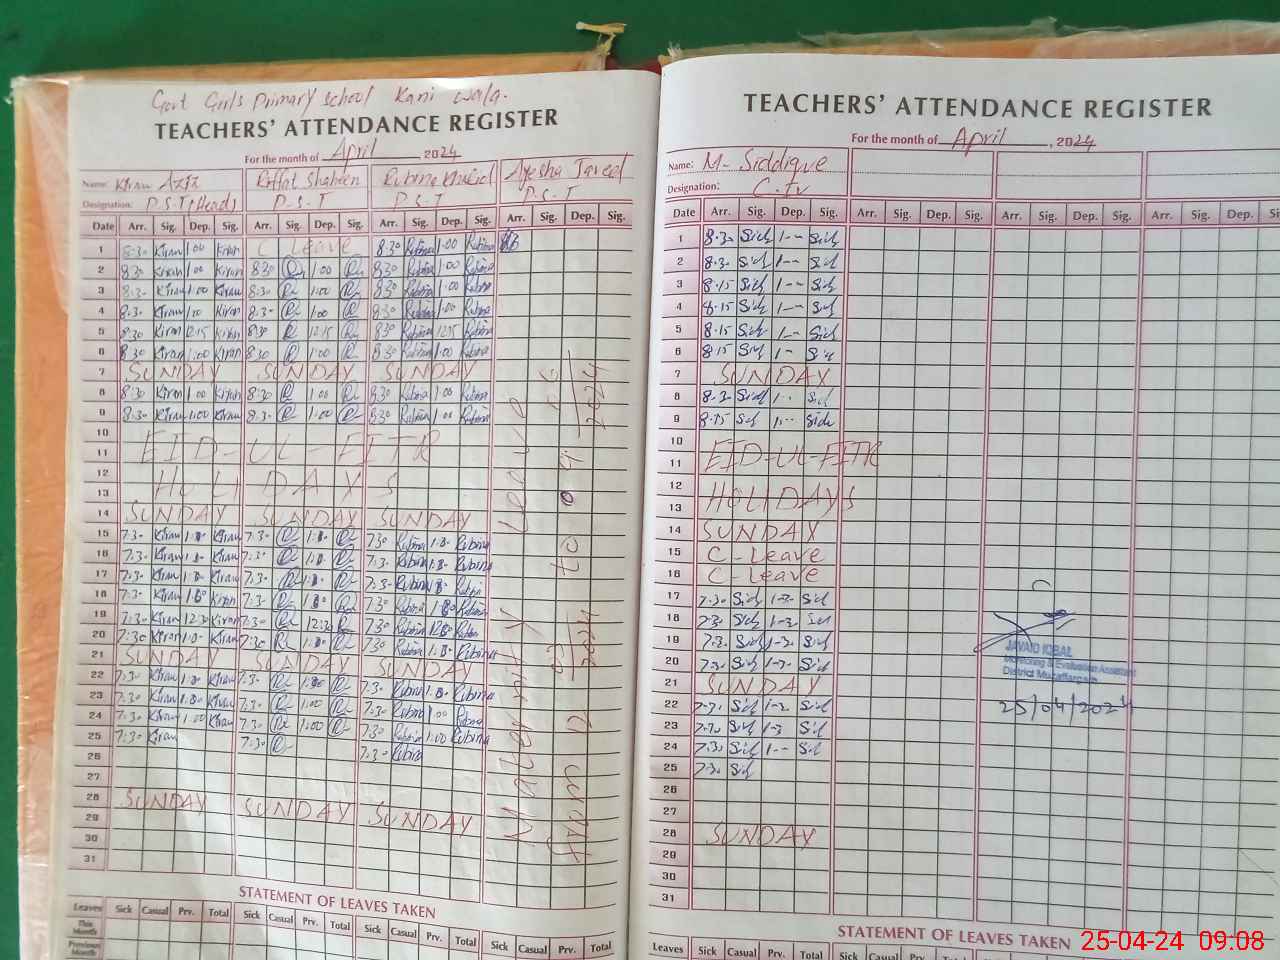 Govt Girls Primary School Kani wala.
TEACHERS' ATTENDANCE REGISTER
For the month of April, 2024
Name: Kiran Aziz Riffat Shaheen Rubina Khalid Ayesha Javed
Designation: P.S.T (Head) P.S.T P.S.T P.S.T
Date Arr. Sig. Dep. Sig. Arr. Sig. Dep. Sig. Arr. Sig. Dep. Sig. Arr. Sig. Dep. Sig.
1 8:30 Kiran 1:00 Kiran C Leave 8:30 Rubina 1:00 Rubina
2 8:30 Kiran 1:00 Kiran 8:30 1:00 8:30 Rubina 1:00 Rubina
3 8:30 Kiran 1:00 Kiran 8:30 1:00 8:30 Rubina 1:00 Rubina
4 8:30 Kiran 1:00 Kiran 8:30 1:00 8:30 Rubina 1:00 Rubina
5 8:30 Kiran 12:15 Kiran 8:30 12:15 8:30 Rubina 12:15 Rubina
6 8:30 Kiran 1:00 Kiran 8:30 1:00 8:30 Rubina 1:00 Rubina
7 SUNDAY SUNDAY SUNDAY
8 8:30 Kiran 1:00 Kiran 8:30 1:00 8:30 Rubina 1:00 Rubina
9 8:30 Kiran 1:00 Kiran 8:30 1:00 8:30 Rubina 1:00 Rubina
10
11 EID-UL-FITR
12
13 HOLIDAYS
14 SUNDAY SUNDAY SUNDAY
15 7:30 Kiran Kiran 7:30 7:30 Rubina Rubina
16 7:30 Kiran Kiran 7:30 7:30 Rubina Rubina
17 7:30 Kiran Kiran 7:30 7:30 Rubina Rubina
18 7:30 Kiran Kiran 7:30 7:30 Rubina Rubina
19 7:30 Kiran 12:30 Kiran 7:30 12:30 7:30 Rubina Rubina
20 7:30 Kiran Kiran 7:30 7:30 Rubina Rubina
21 SUNDAY SUNDAY SUNDAY
22 7:30 Kiran Kiran 7:30 7:30 Rubina Rubina
23 7:30 Kiran Kiran 7:30 1:00 7:30 Rubina 1:00 Rubina
24 7:30 Kiran 1:00 Kiran 7:30 1:00 7:30 Rubina 1:00 Rubina
25 7:30 Kiran 7:30 7:30 Rubina
26
27
28 SUNDAY SUNDAY SUNDAY
29
30
31
Maternity Leave
to
2024
2024
STATEMENT OF LEAVES TAKEN
Leaves Sick Casual Prv. Total Sick Casual Prv. Total Sick Casual Prv. Total Sick Casual Prv. Total
This Month
Previous Month
TEACHERS' ATTENDANCE REGISTER
For the month of April, 2024
Name: M. Siddique
Designation: C.IV
Date Arr. Sig. Dep. Sig. Arr. Sig. Dep. Sig. Arr. Sig. Dep. Sig. Arr. Sig. Dep. Sig.
1 8.30 Sid 1-- Sid
2 8.30 Sid 1-- Sid
3 8.15 Sid 1-- Sid
4 8.15 Sid 1-- Sid
5 8.15 Sid 1-- Sid
6 8.15 Sid 1- Sid
7 SUNDAY
8 8.30 Sid 1-- Sid
9 8.15 Sid 1-- Sid
10
11 EID-UL-FITR
12
13 HOLIDAYS
14 SUNDAY
15 C-Leave
16 C-Leave
17 7.30 Sid 1-30 Sid
18 7.30 Sid 1-30 Sid
19 7.30 Sid 1-30 Sid
20 7.30 Sid 1-30 Sid
21 SUNDAY
22 7.30 Sid 1-30 Sid
23 7.30 Sid 1-30 Sid
24 7.30 Sid 1-- Sid
25 7.30 Sid
26
27
28 SUNDAY
29
30
31
JAVAID IQBAL
Monitoring & Evaluation Assistant
District Muzaffargarh
25/04/2024
STATEMENT OF LEAVES TAKEN
Leaves Sick Casual Prv. Total Sick Casual Prv. Total
25-04-24 09:08